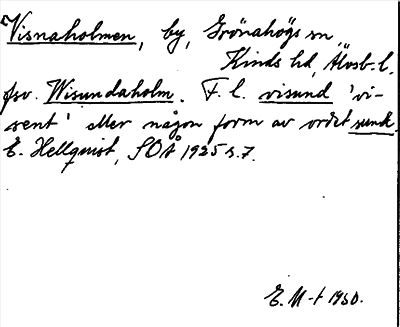 Visnaholmen, by, Grönahögs sn,
Kinds hd, Älvsb. l.
fsv. Wisundaholm. F. l. visund 'vi-
sent' eller någon form av ordet sund.
E. Hellquist, SOÅ 1925 s. 7.
E. M-t 1950.